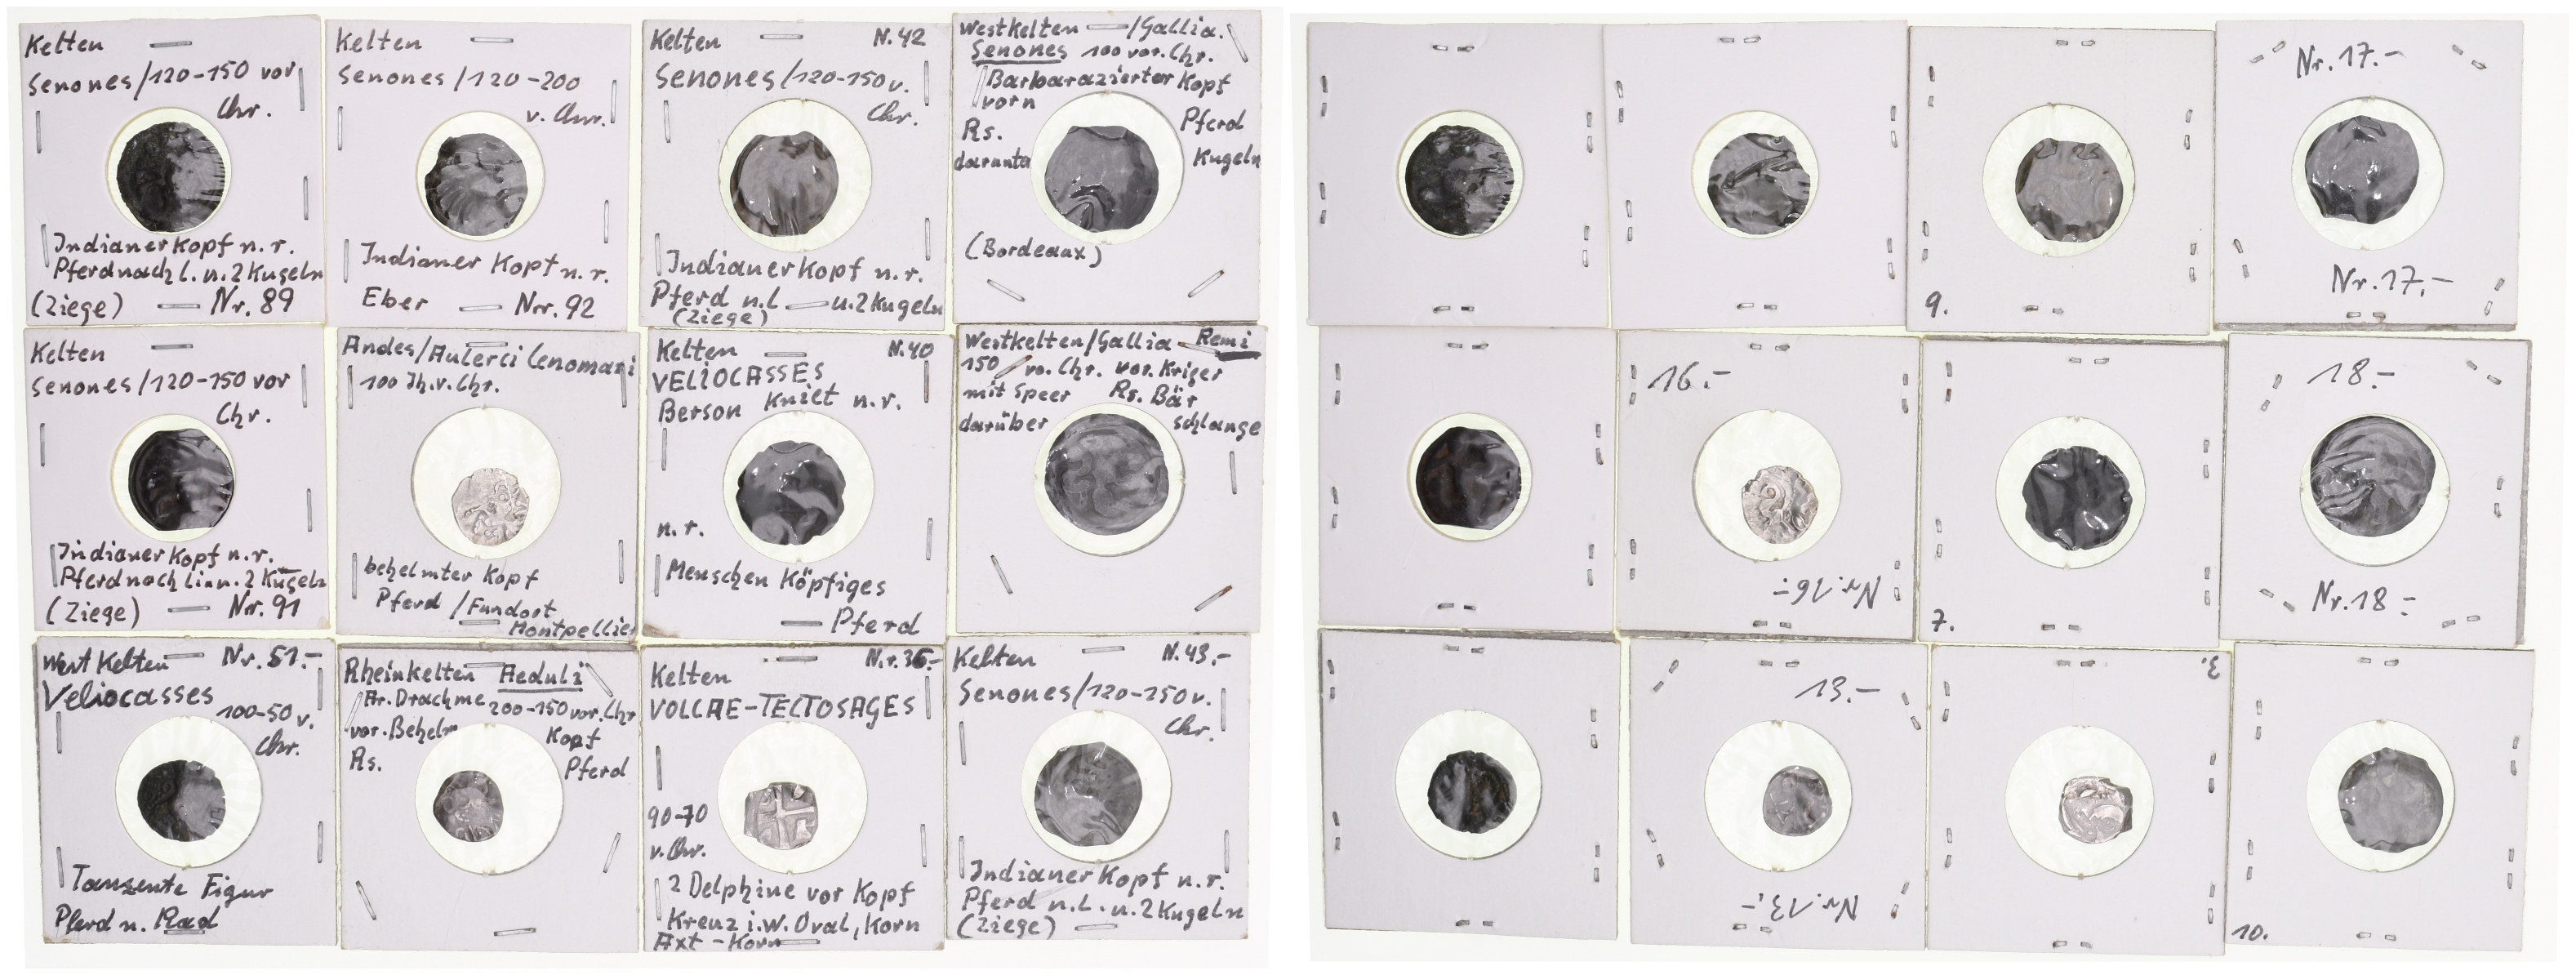 Kelten
Senones/120-150 vor
Chr.
Indianerkopf n.r.
Pferd nach l. u. 2 Kugeln
(Ziege) Nr. 89
Kelten
Senones/120-200
v. Chr.
Indianer Kopf n.r.
Eber Nr. 92
Kelten N.42
Senones/120-150 v.
Chr.
Indianerkopf n.r.
Pferd n.l u. 2 Kugeln
(Ziege)
Westkelten /Gallia.
Senones 100 vor. Chr.
Barbarazierter Kopf
vorn
Rs. Pferd
darunta Kugeln
(Bordeaux)
Kelten
Senones/120-150 vor
Chr.
Indianerkopf n.r.
Pferd nach lin u. 2 Kugeln
(Ziege) Nr. 91
Andes/Aulerci Cenomani
100 Jh. v. Chr.
behelmter Kopf
Pferd/Fundort
Montpellier
Kelten N.40
VELIOCASSES
Berson Kniet n.r.
n.r.
Menschen Köpfiges
Pferd
Westkelten/Gallia Remi
150 vo. Chr. vor. Kriger
mit Speer Rs. Bär
darüber schlange
West Kelten Nr. 51.-
Veliocasses
100-50 v.
Chr.
Tanzente Figur
Pferd u. Rad
Rheinkelten Aeduli
Ar. Drachme 200-150 vor. Chr
vor. Behelm Kopf
Rs. Pferd
Kelten N.r.36.-
VOLCAE-TECTOSAGES
90-70
v. Chr.
2 Delphine vor Kopf
Kreuz i.w. Oval, Korn
Axt - Korn
Kelten N.43.-
Senones/120-150 v.
Chr.
Indianerkopf n.r.
Pferd n.L. u. 2 Kugeln
(Ziege)
9.
Nr. 17.-
Nr. 17.-
16.-
Nr. 16-
7.
18.-
Nr. 18-
13.-
Nr. 13.-
3.
10.